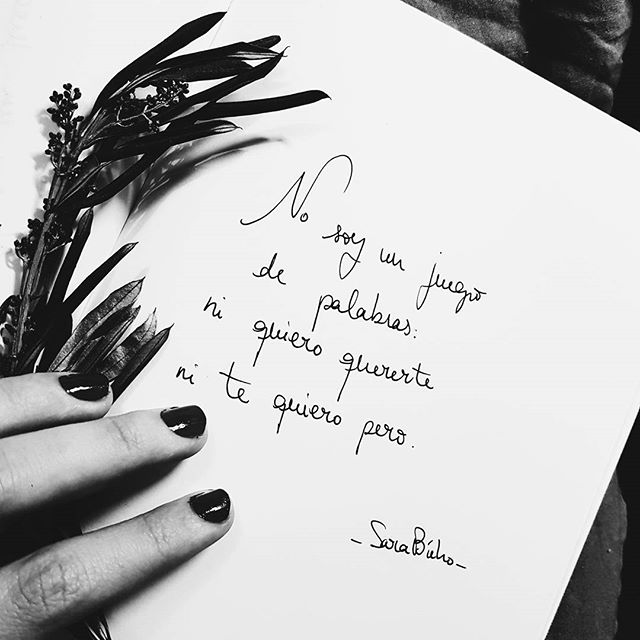 No soy un juego
de palabras:
ni quiero quererte
ni te quiero pero.
- Sara Búho -